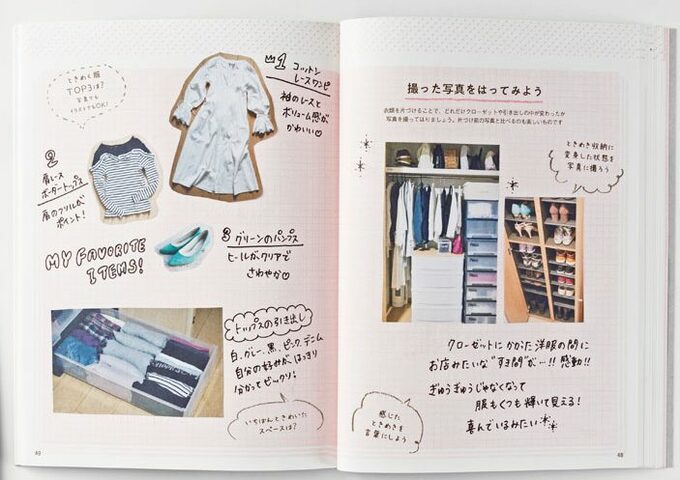 ときめく服
TOP3は?
写真でも
イラストでもOK!
1 コットン
レースワンピ
袖のレースと
ボリューム感が
かわいい♡
2
肩レース
ボーダートップス
肩のフリルが
ポイント!
3 グリーンのパンプス
ヒールがクリアで
さわやか♡
MY FAVORITE
ITEMS!
トップスの引き出し
白、グレー、黒、ピンク、デニム
自分の好みが、はっきり
分かってビックリ!
いちばんときめいた
スペースは?
49
撮った写真をはってみよう
衣類を片づけることで、どれだけクローゼットや引き出しの中が変わったか
写真を撮ってはりましょう。片づけ前の写真と比べるのも楽しいものです
ときめき収納に
変身した状態を
写真に撮ろう
クローゼットに かかった 洋服の間に
お店みたいな“すき間”が…!! 感動!!
ぎゅうぎゅうじゃなくなって
服もくつも 輝いて見える!
喜んでいるみたい
感じた
ときめきを
言葉にしよう
48